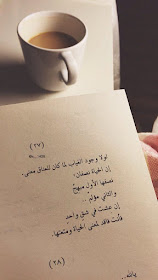 (٢٧)
لولا وجود الغياب لما كان للعناق معنى،
إن الحياة نصفان،
نصفها الأول مبهجٌ
والثاني مؤلم ..
إن عشت في شقٍ واحدٍ
فأنت فاقد لمعنى الحياة ومتعتها.
(٢٨)
يالله..